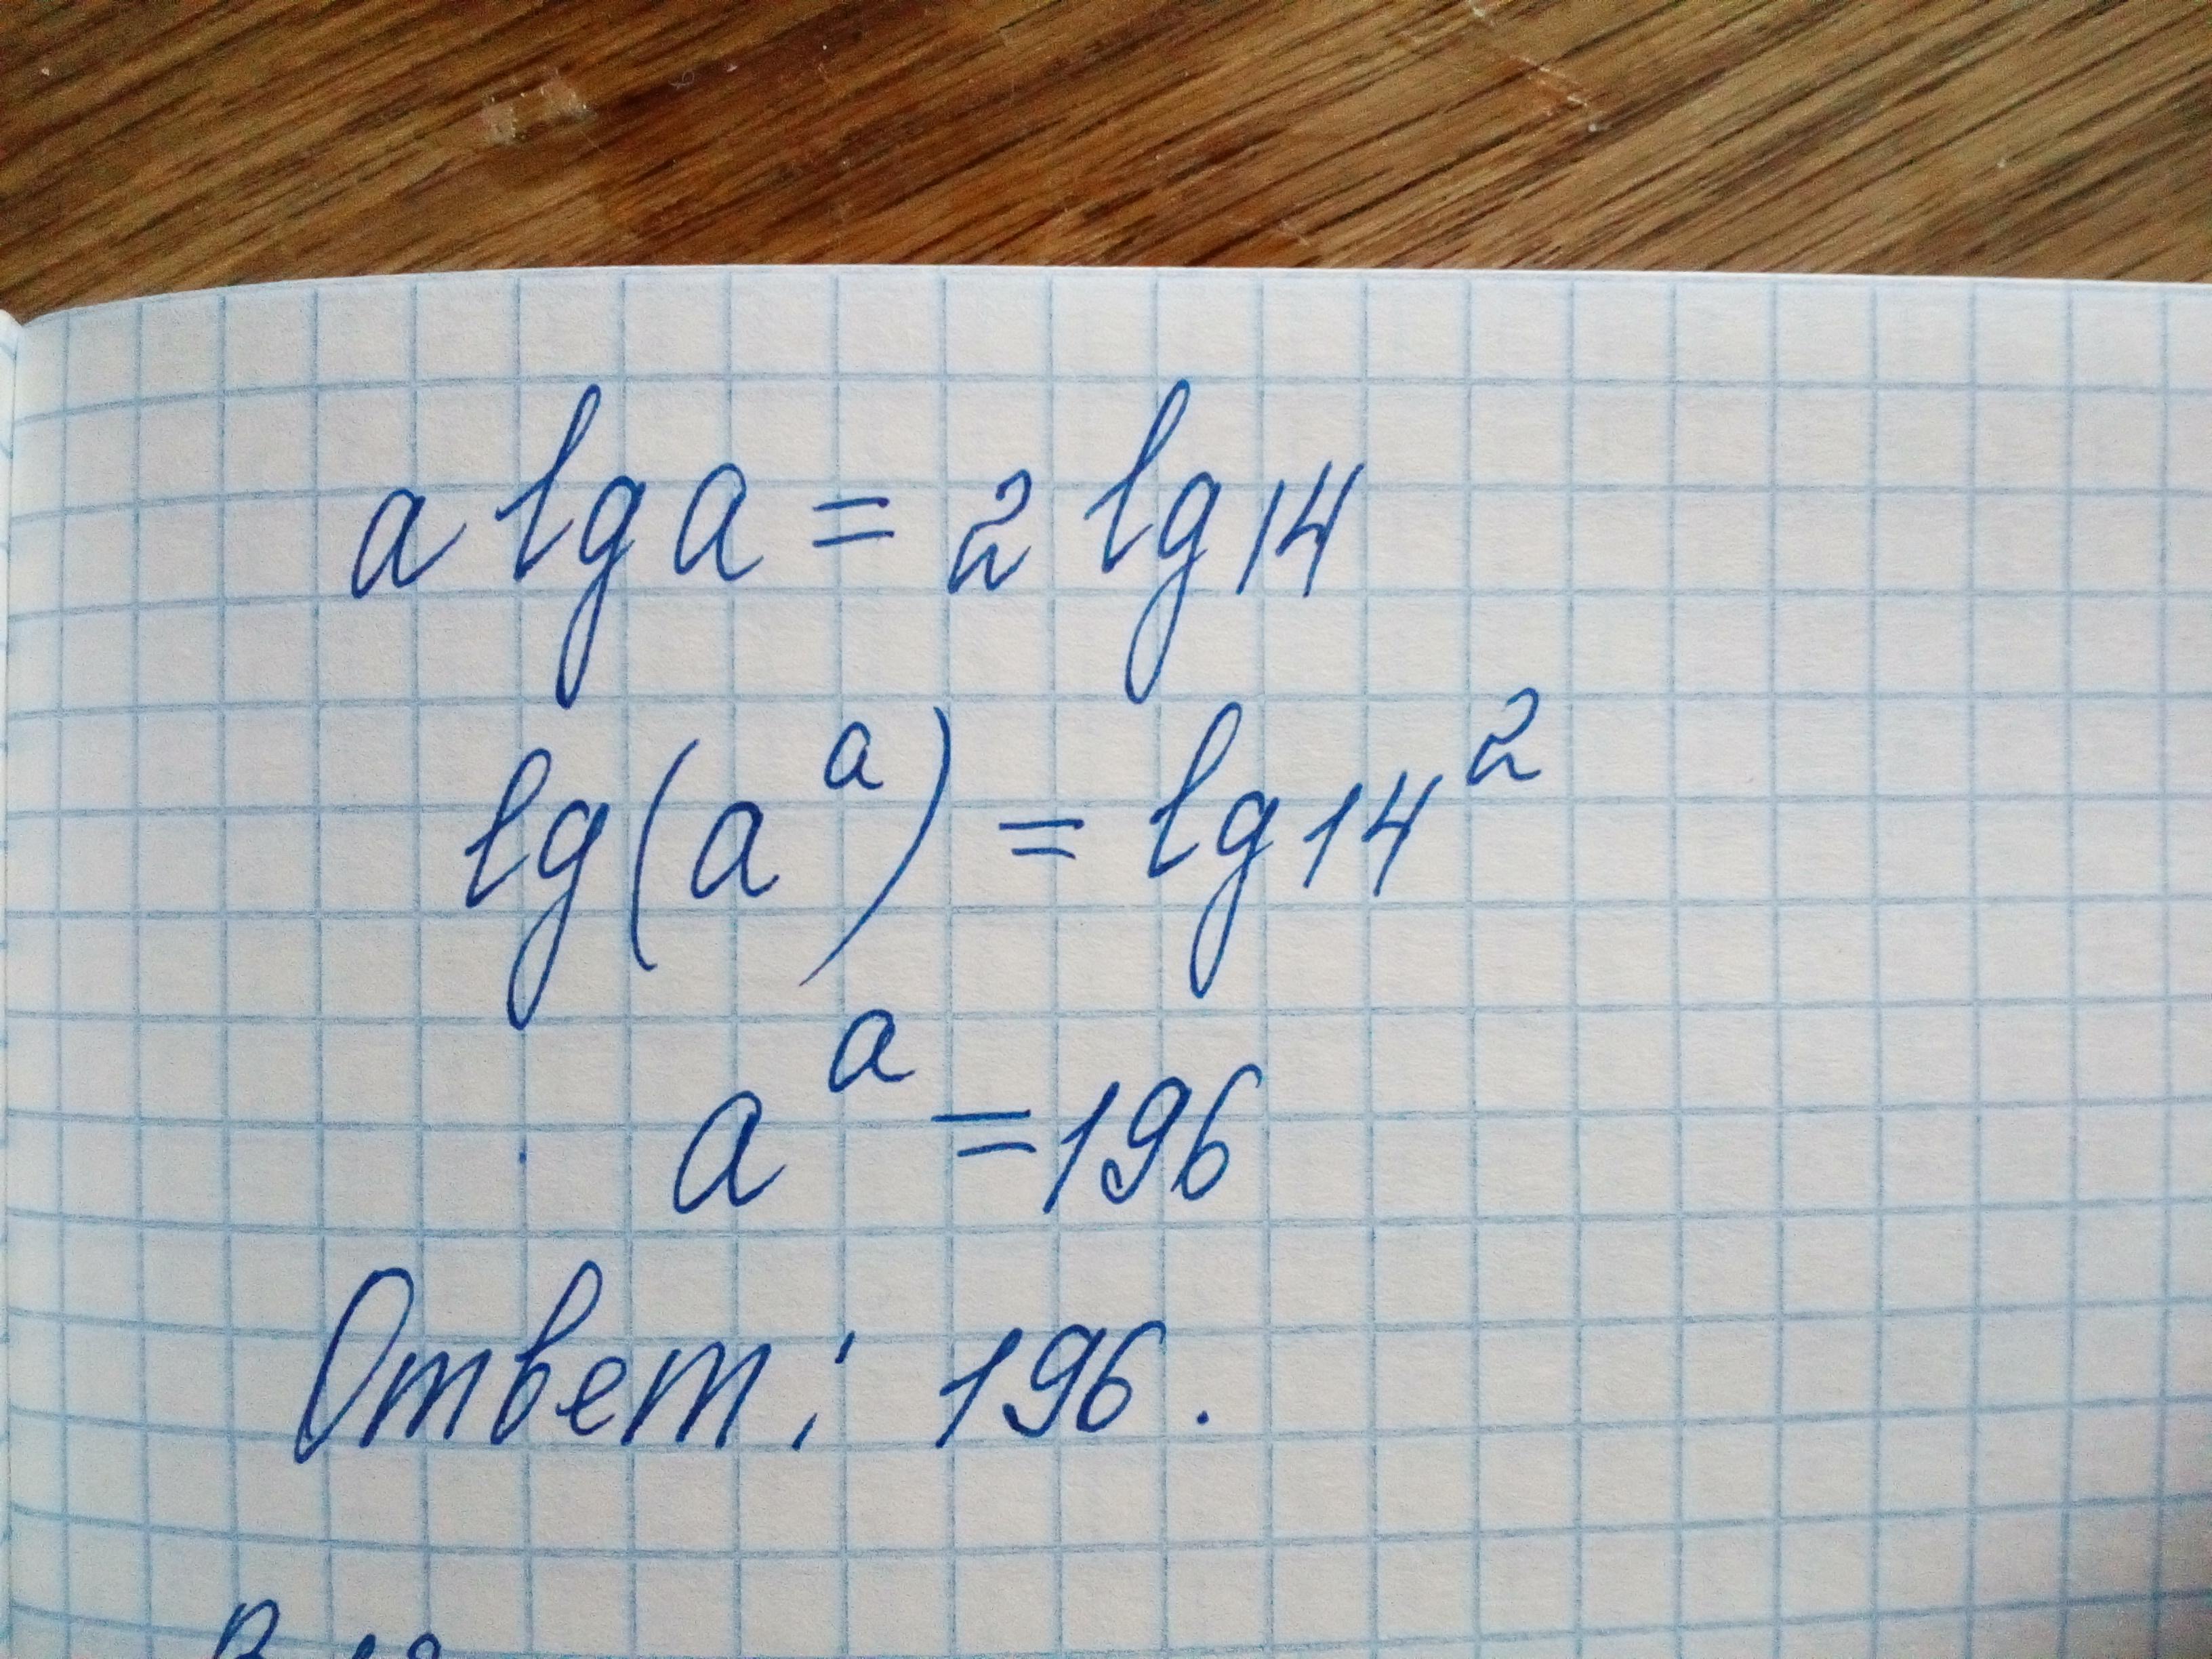 a lg a = 2 lg 14
lg(a^a) = lg 14^2
a^a = 196
Ответ: 196.